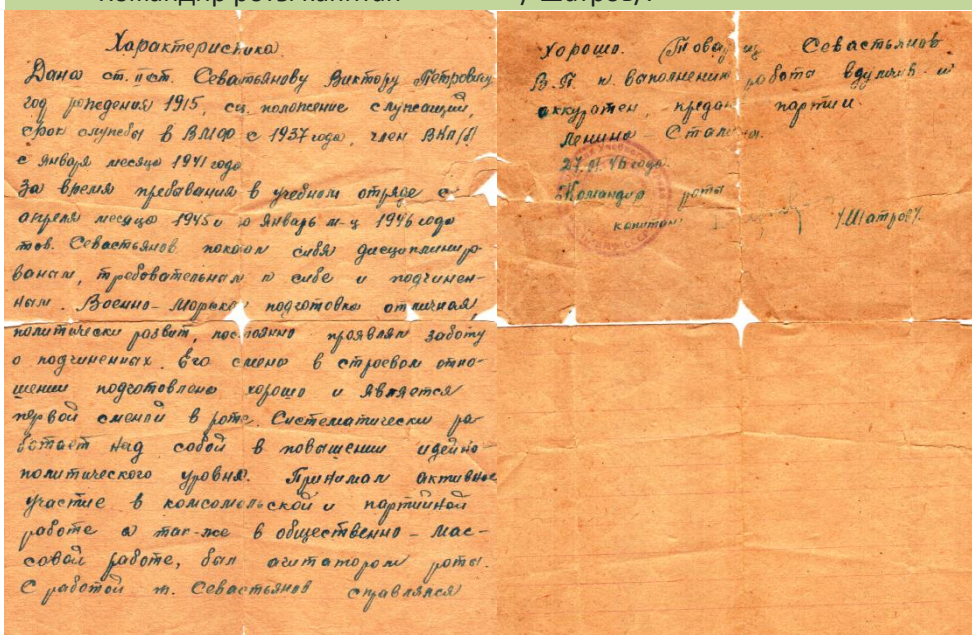 Командир роты капитан /Шатров/.
Характеристика.
Дана ст. Севастьянову Виктору Петровичу
год рождения 1915, сц. положение служащий,
срок службы в ВМФ с 1937 года, член ВКП/б/
с Января месяца 1941 года.
За время пребывания в учебном отряде с
апреля месяца 1945 по Январь м-ц 1946 года
тов. Севастьянов показал себя дисциплиниро-
ваным, требовательным к себе и подчинен-
ным. Военно-Морская подготовка отличная,
политически развит, постоянно проявлял заботу
о подчиненных. Его смена в строевом отно-
шении подготовлена хорошо и является
первой сменой в роте. Систематически ра-
ботает над собой в повышении идейно
политического уровня. Принимал активное
участие в комсомольской и партийной
работе а так-же в общественно-мас-
совой работе, был агитатором роты.
С работой т. Севастьянов справлялся
хорошо. Севастьянов
В.П. к выполнению работа вдумчив и
аккуратен, предан партии
Ленина-Сталина.
46 года.
Командир роты
капитан /Шатров/.